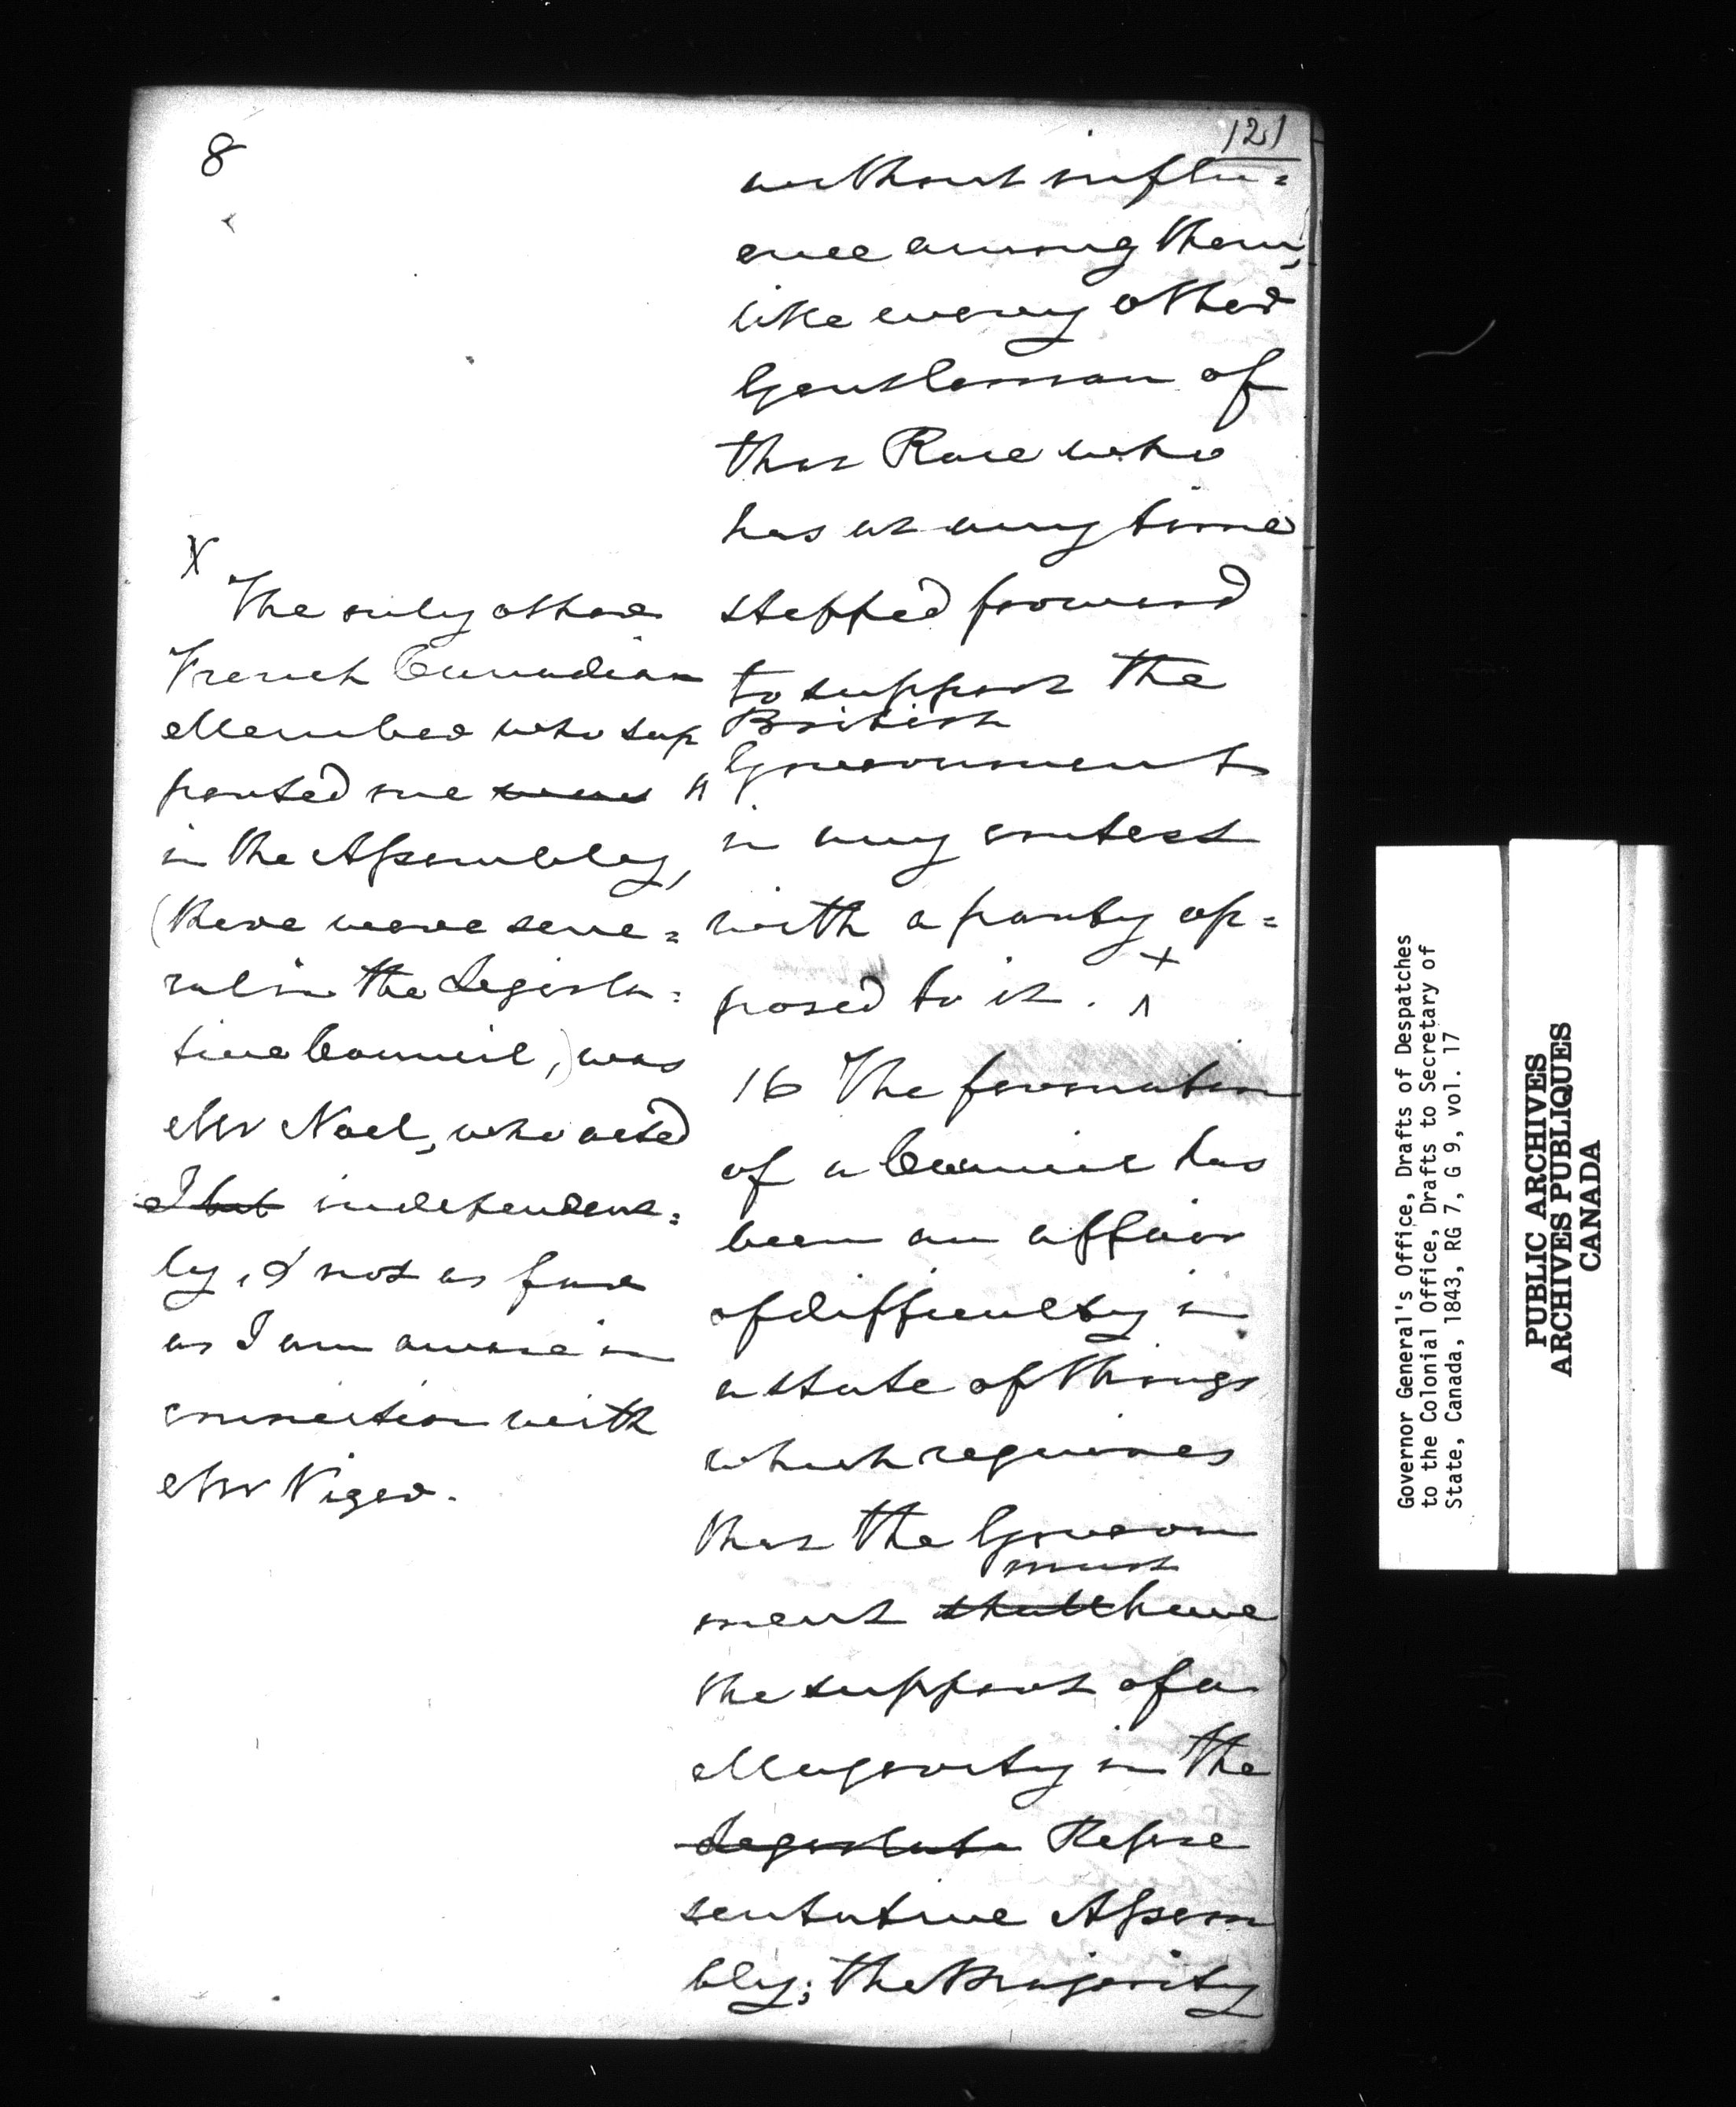 8
121
without influ=
ence among them,
like every other
Gentleman of
that Race who
has at any time
stepped forward
to support the
British
Government
in any contest
with a party op=
posed to it. ^ x
16 The formation
of a Council has
been an affair
of difficulty in
a state of things
which requires
that the Govern
must
ment shall have
the support of a
Majority in the
Legislate Repre
sentative Assem
bly; the Majority
X
The only other
French Canadian
Member who sup
ported me
in the Assembly,
(there were seve=
ral in the Legisla=
tive Council,) was
Mr Noel, who acted
independent=
ly, & not as far
as I am aware in
connection with
Mr Viger.
Governor General's Office, Drafts of Despatches
to the Colonial Office, Drafts to Secretary of
State, Canada, 1843, RG 7, G 9, vol. 17
PUBLIC ARCHIVES
ARCHIVES PUBLIQUES
CANADA